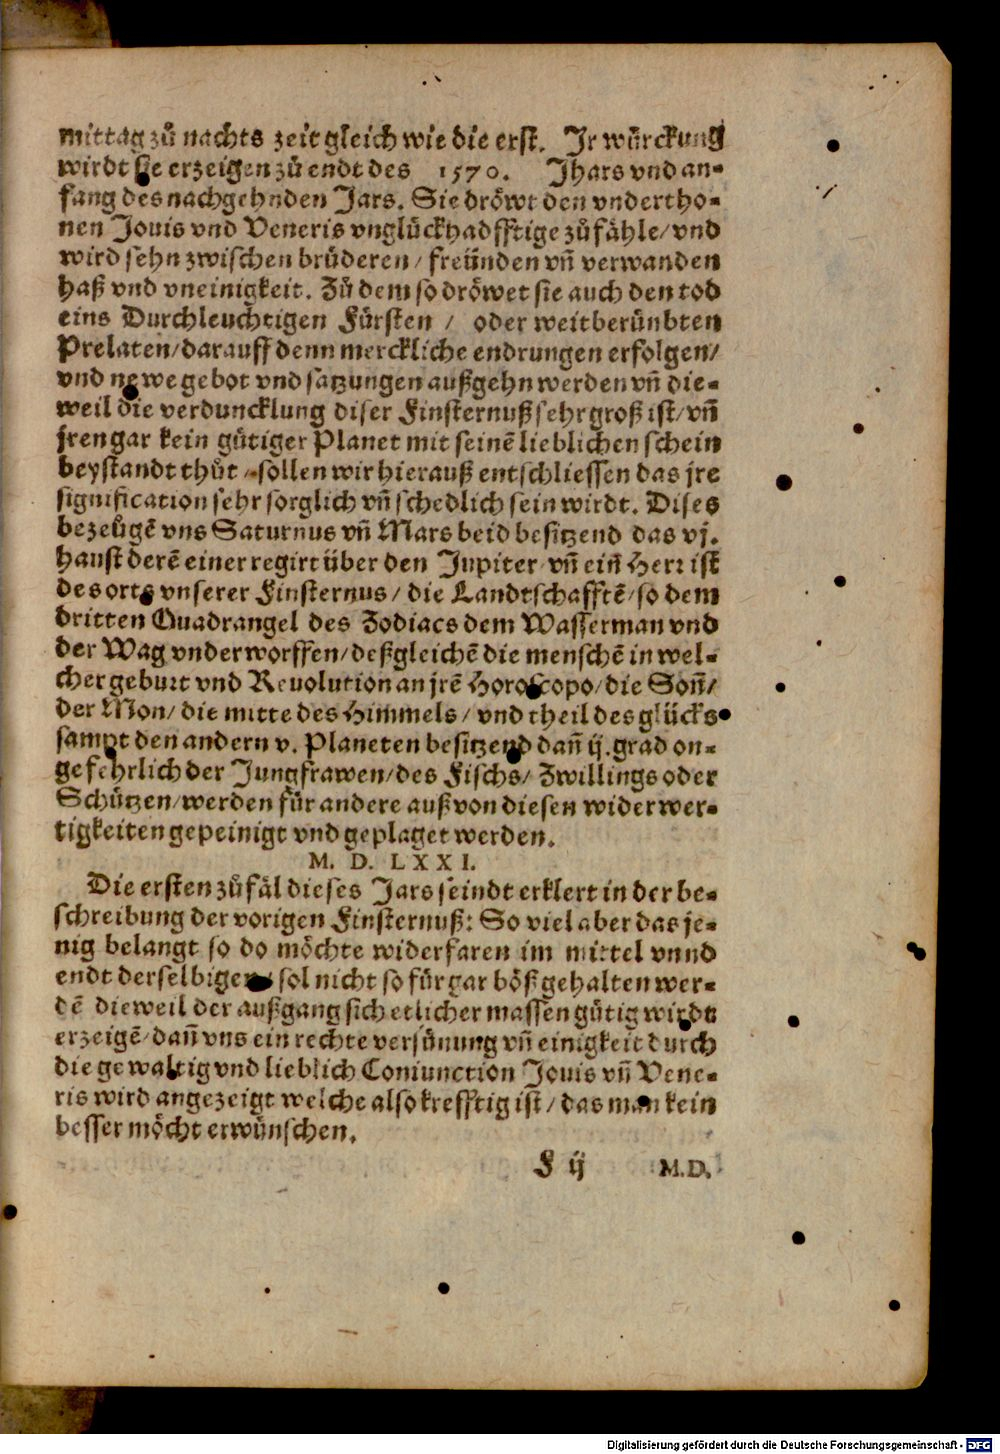 mittag zů nachts zeit gleich wie die erst. Jr würckung
wirdt sie erzeigen zů endt des 1570. Jhars vnd an-
fang des nachgehnden Jars. Sie dröwt den vndertho-
nen Jouis vnd Veneris vnglückhadfftige zůfähle/ vnd
wird sehn zwischen brüderen/ freünden vñ verwanden
haß vnd vneinigkeit. Zů dem so dröwet sie auch den tod
eins Durchleuchtigen Fürsten / oder weitberünbten
Prelaten/ darauff denn merckliche endrungen erfolgen/
vnd newe gebot vnd satzungen außgehn werden vñ die-
weil die verduncklung diser Finsternuß sehr groß ist/ vñ
jren gar kein gütiger Planet mit seinē lieblichen schein
beystandt thůt / sollen wir hierauß entschliessen das jre
signification sehr sorglich vñ schedlich sein wirdt. Dises
bezeůgē vns Saturnus vñ Mars beid besitzend das vj.
haust derē einer regirt über den Jupiter vñ eiñ Herr ist
des orts vnserer Finsternus/ die Landtschafftē/ so dem
dritten Quadrangel des Zodiacs dem Wasserman vnd
der Wag vnderworffen/ deßgleichē die menschē in wel-
cher geburt vnd Reuolution an jrē Horoscopo/ die Soñ/
der Mon/ die mitte des Himmels/ vnd theil des glücks
sampt den andern v. Planeten besitzend dañ ij. grad on-
gefehrlich der Jungfrawen/ des Fischs/ Zwillings oder
Schützen/ werden für andere auß von diesen widerwer-
tigkeiten gepeinigt vnd geplaget werden.
M. D. LXXI.
Die ersten zůfäl dieses Jars seindt erklert in der be-
schreibung der vorigen Finsternuß: So viel aber das je-
nig belangt so do möchte widerfaren im mittel vnnd
endt derselbigen/ sol nicht so für gar böß gehalten wer-
dē dieweil der außgang sich etlicher massen gütig wirdt
erzeigē/ dañ vns ein rechte versünung vñ einigkeit durch
die gewaltig vnd lieblich Coniunction Jouis vñ Vene-
ris wird angezeigt welche also krefftig ist/ das man kein
besser möcht erwünschen.
F ij M.D.
Digitalisierung gefördert durch die Deutsche Forschungsgemeinschaft - DFG